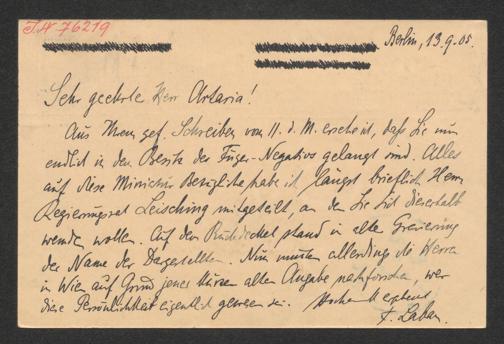 J.N 76219
Berlin, 13.9.05.
Sehr geehrter Herr Artaria!
Aus Ihrem gef. Schreiben vom 11. d. M. ersehe ich, daß Sie nun
endlich in den Besitz des Füger-Negativs gelangt sind. Alles
auf diese Miniatur Bezügliche habe ich längst brieflich Herrn
Regierungsrat Leisching mitgeteilt, an den Sie sich dieserhalb
wenden wollen. Auf dem Rückdeckel stand in alter Gravierung
der Name der Dargestellten. Nun müßten allerdings die Herren
in Wien auf Grund jener kurzen alten Angabe nachforschen, wer
diese Persönlichkeit eigentlich gewesen sei. Hochachtend ergebenst
F. Laban.